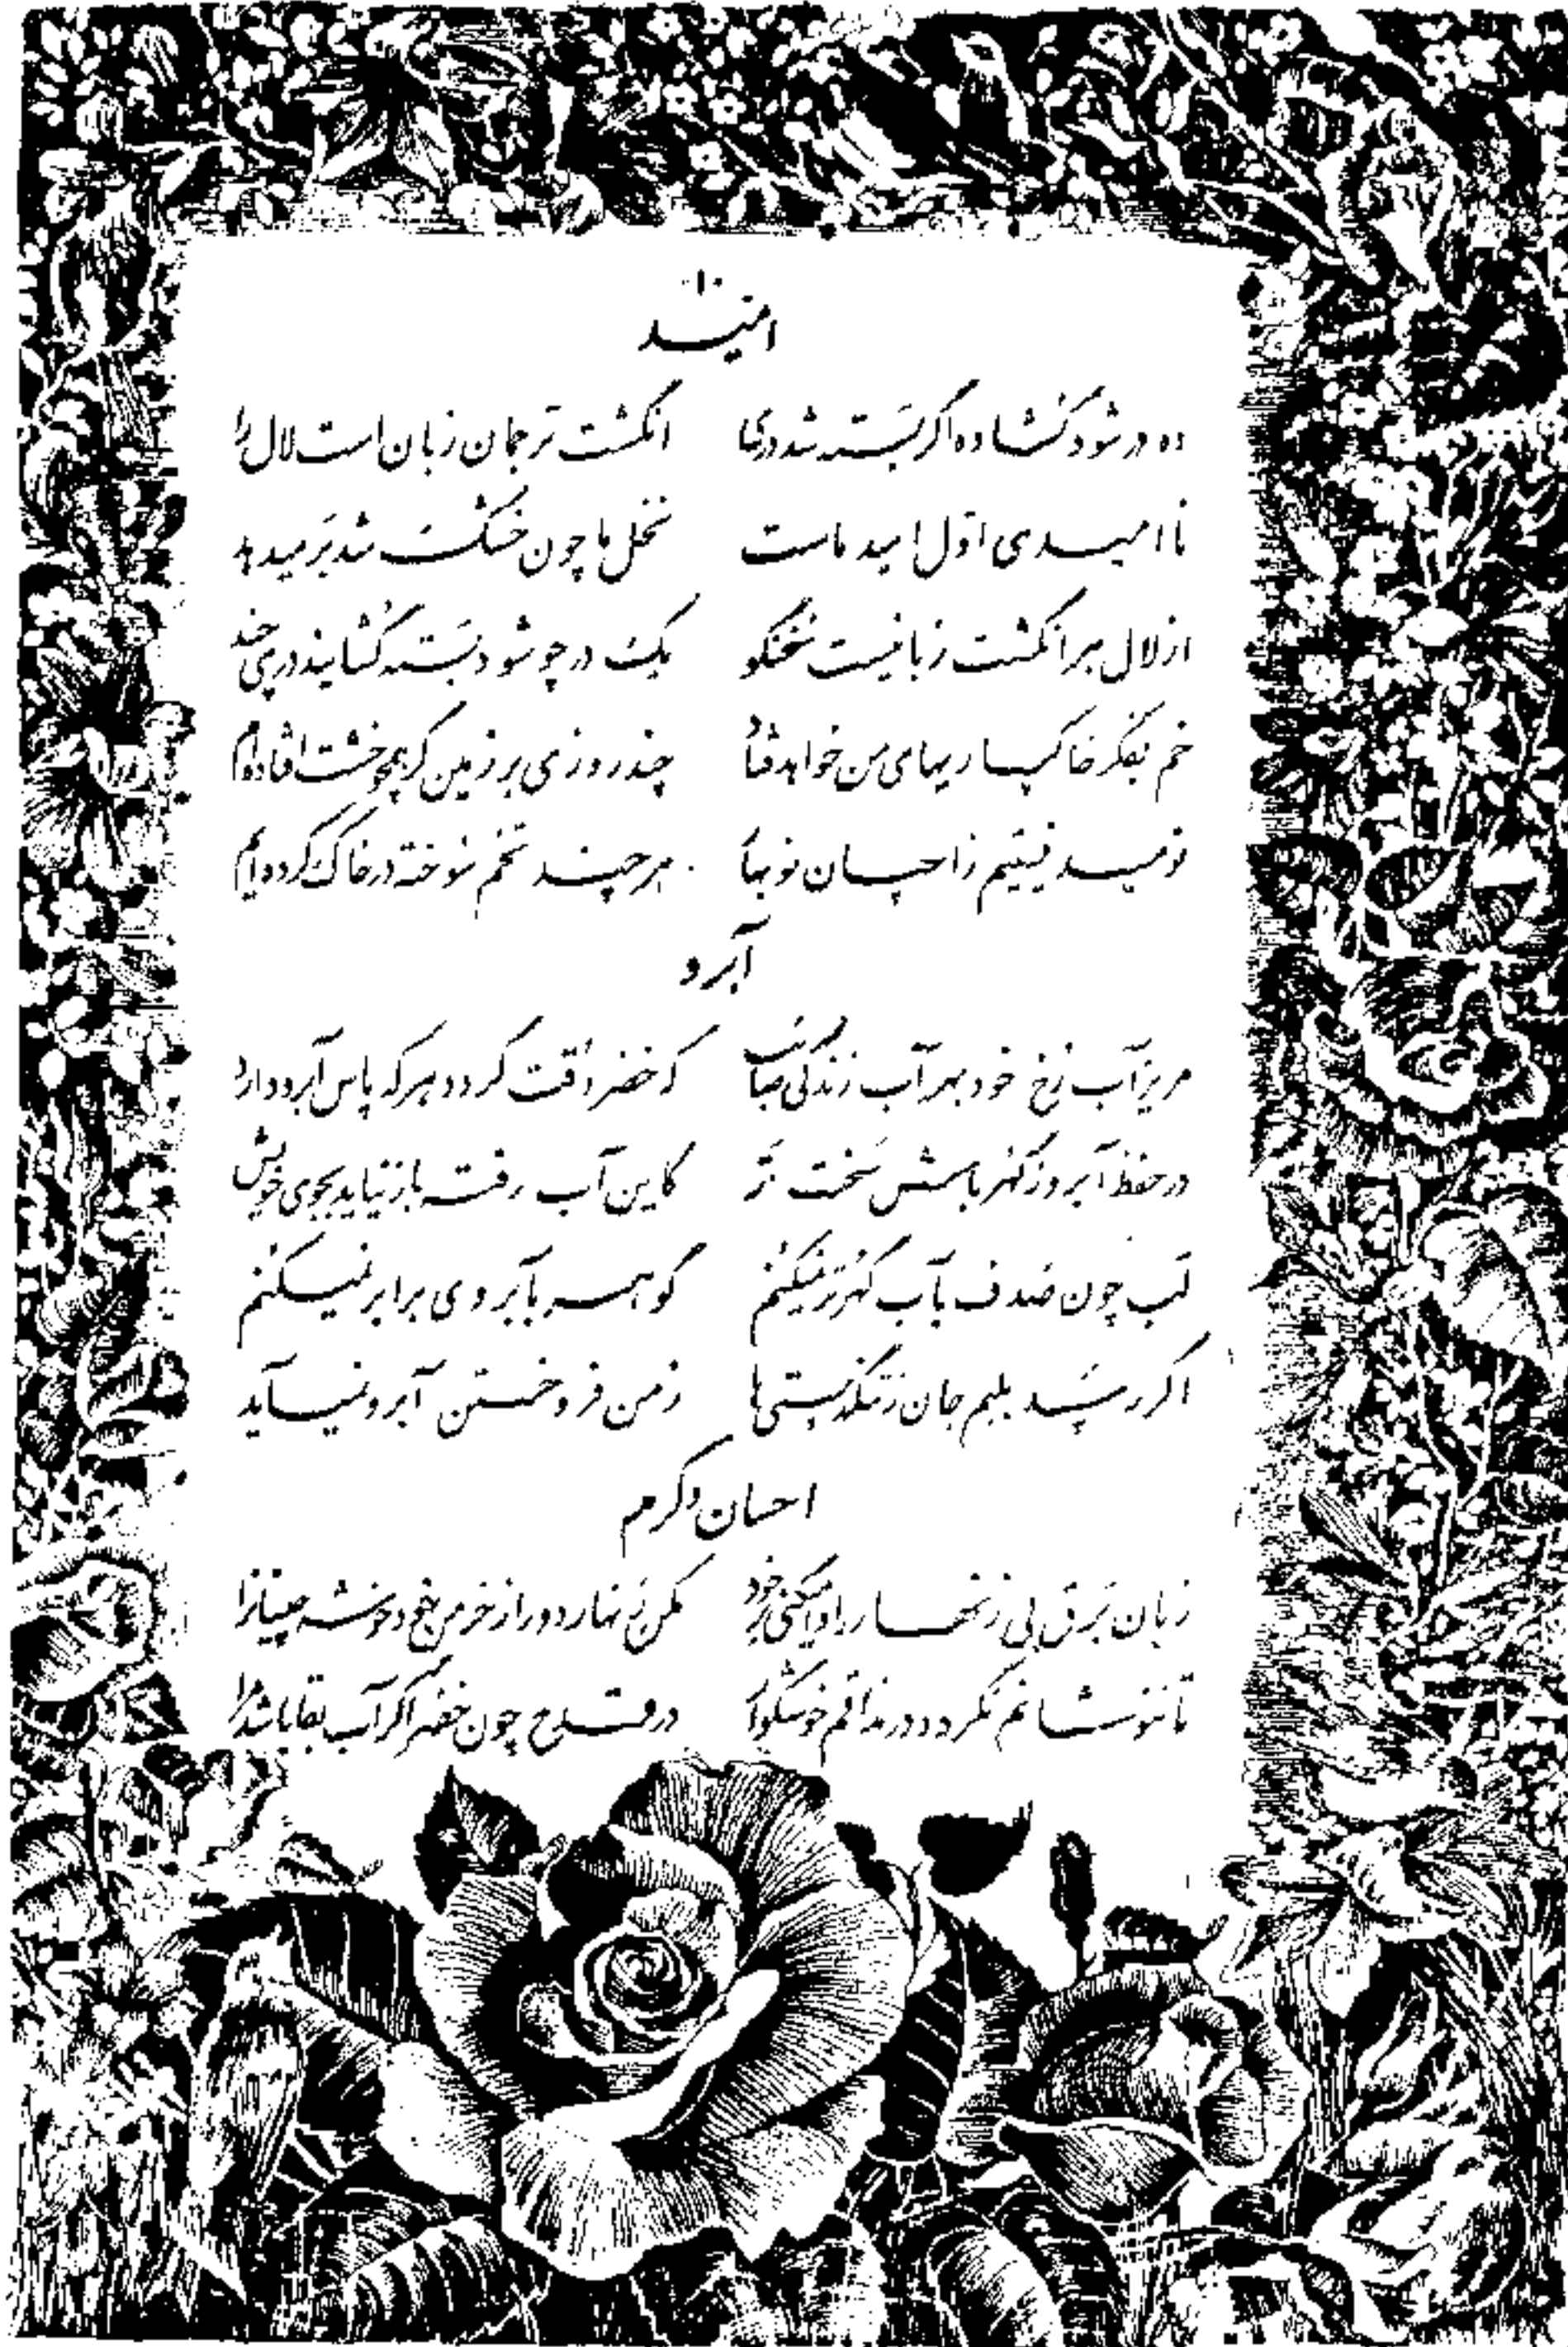 ۱۰
امید
ده در شود گشاده اگر بسته شد دری انگشت ترجمان زبان است لال را
ناامیدی اول امید ماست نخل ما چون خشک شد بر میدهد
از لال هر انگشت زبانیست سخنگو یک در چو شود بسته گشایند دری چند
خم بفکر خاکساریهای من خواهد فتاد چند روزی بر زمین گر همچو خشت افتاده‌ام
نومید نیستیم ز احسان نوبهار هر چند تخم سوخته در خاک کرده‌ایم
آبرو
مریز آب رخ خود بهر آب زندگی صائب که خضر وقت گردد هر که پاس آبرو دارد
در حفظ آبرو ز گهر باش سخت‌تر کاین آب رفته باز نیاید بجوی خویش
لب چون صدف بآب گهر تر نمیکنم گوهر به آبروی برابر نمیکنم
اگر رسد بلبم جان ز تنگدستی‌ها ز من فروختن آبرو نمیآید
احسان و کرم
زبان برق بی زنهار را وا میکنی بر خود مکن زنهار دور از خرمن خود خوشه چینانرا
تا ننوشانم نگردد در مذاقم خوشگوار در قدح چون خضر اگر آب بقا باشد مرا